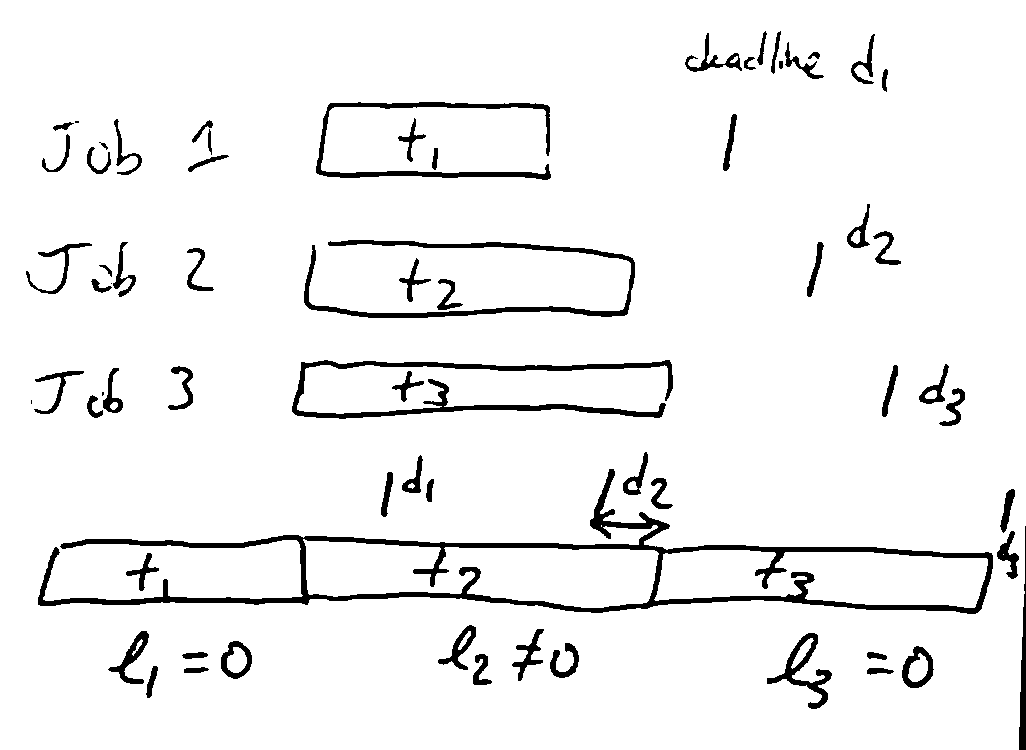 deadline d₁
Job 1 t₁
Job 2 t₂ d₂
Job 3 t₃ d₃
d₁ d₂ d₃
t₁ t₂ t₃
ℓ₁ = 0 ℓ₂ ≠ 0 ℓ₃ = 0